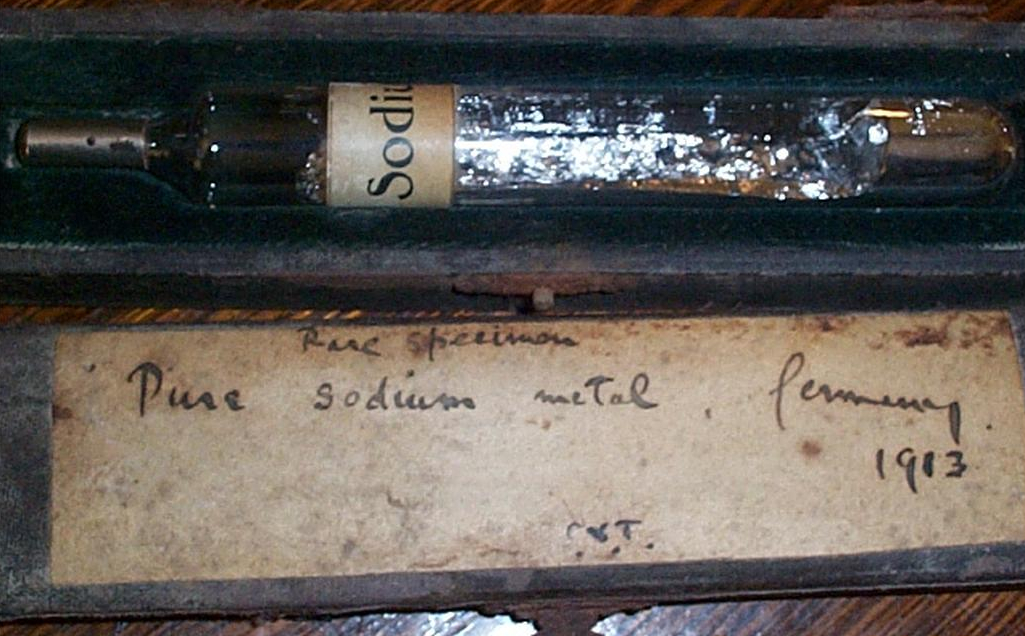 Sodiu
Rare specimen
Pure sodium metal. Germany.
1913